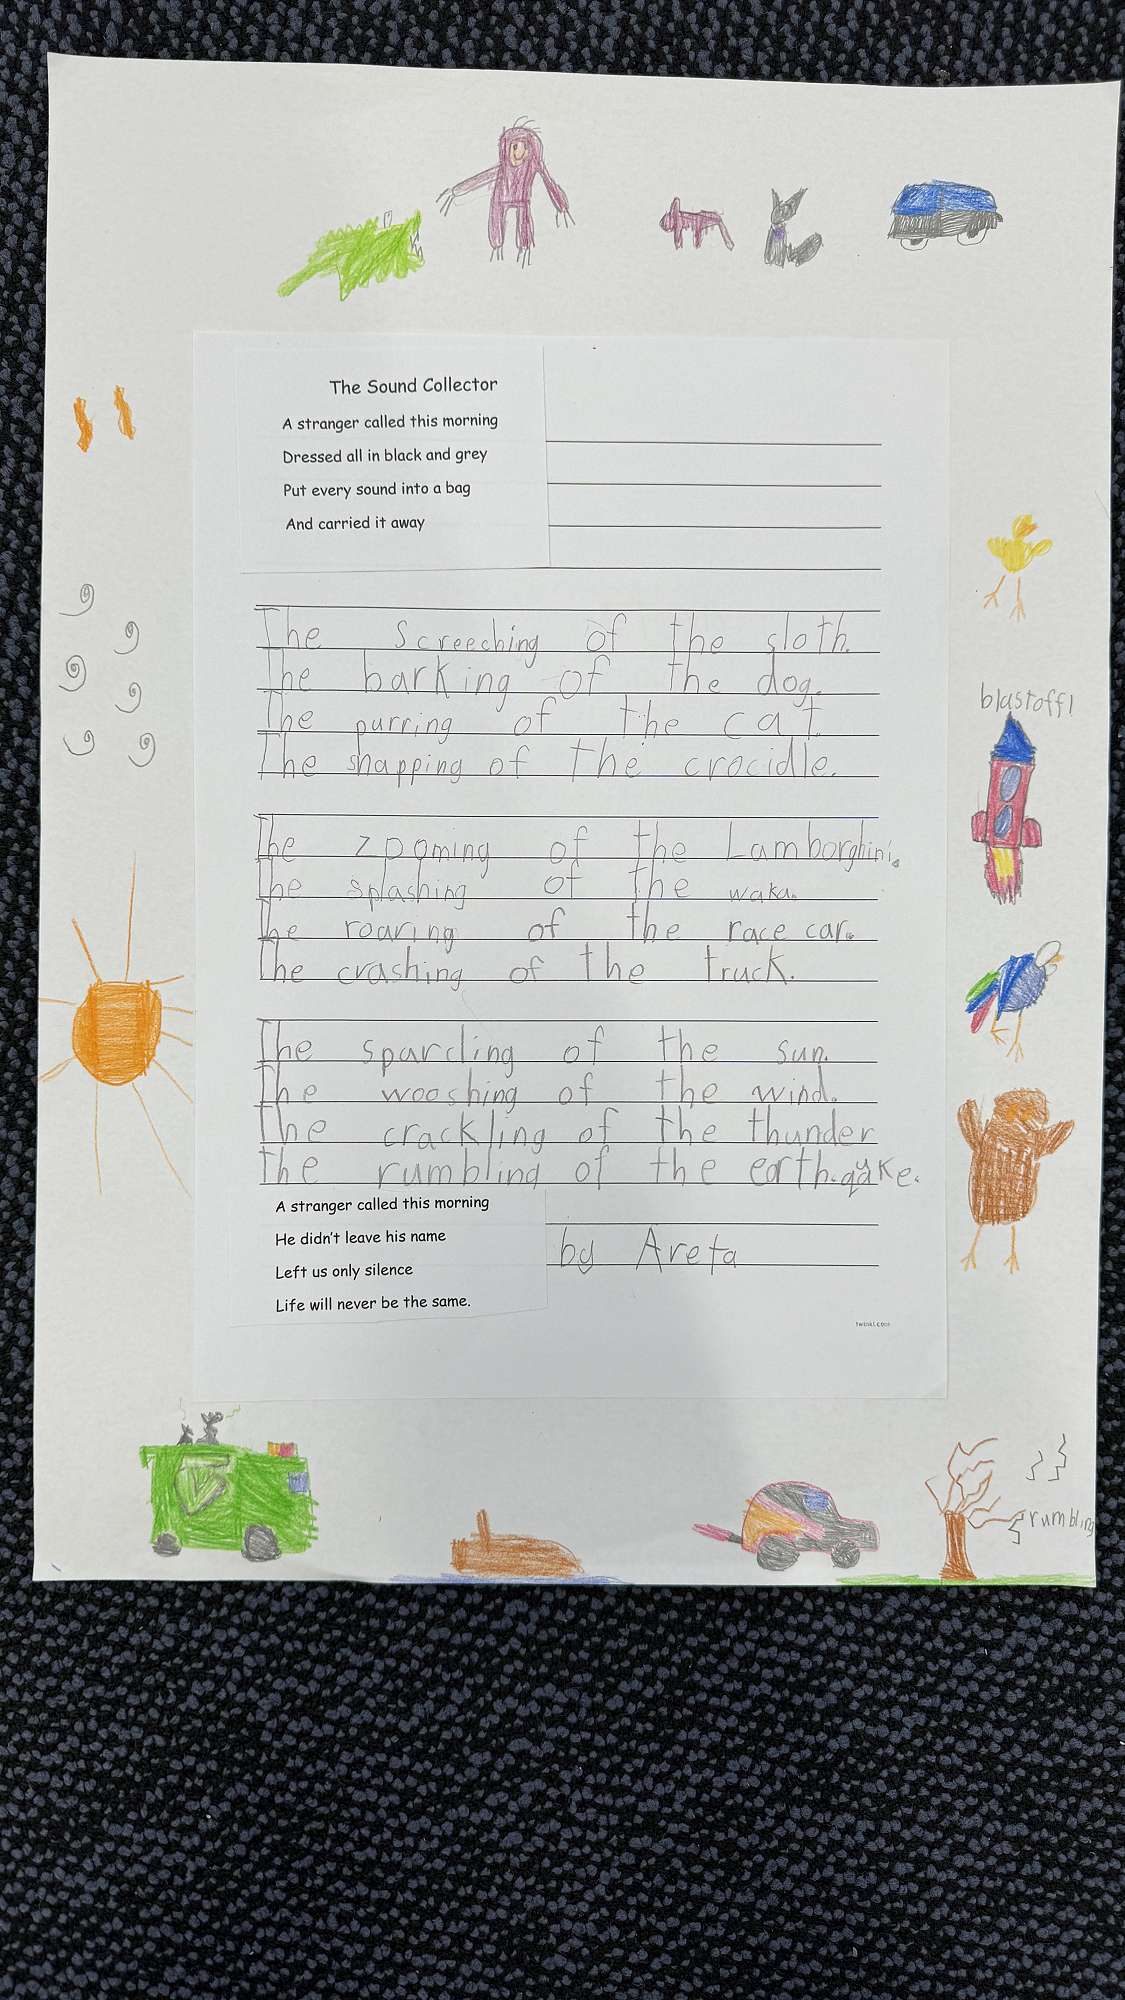 The Sound Collector
A stranger called this morning
Dressed all in black and grey
Put every sound into a bag
And carried it away
The screeching of the sloth.
The barking of the dog.
The purring of the cat.
The snapping of the crocidle.
The zooming of the Lamborghini.
The splashing of the waka.
The roaring of the race car.
The crashing of the truck.
The sparcling of the sun.
The wooshing of the wind.
The crackling of the thunder
The rumbling of the earth.quake.
A stranger called this morning
He didn't leave his name
Left us only silence
Life will never be the same.
by Areta
twinkl.com
blastoff!
rumbling